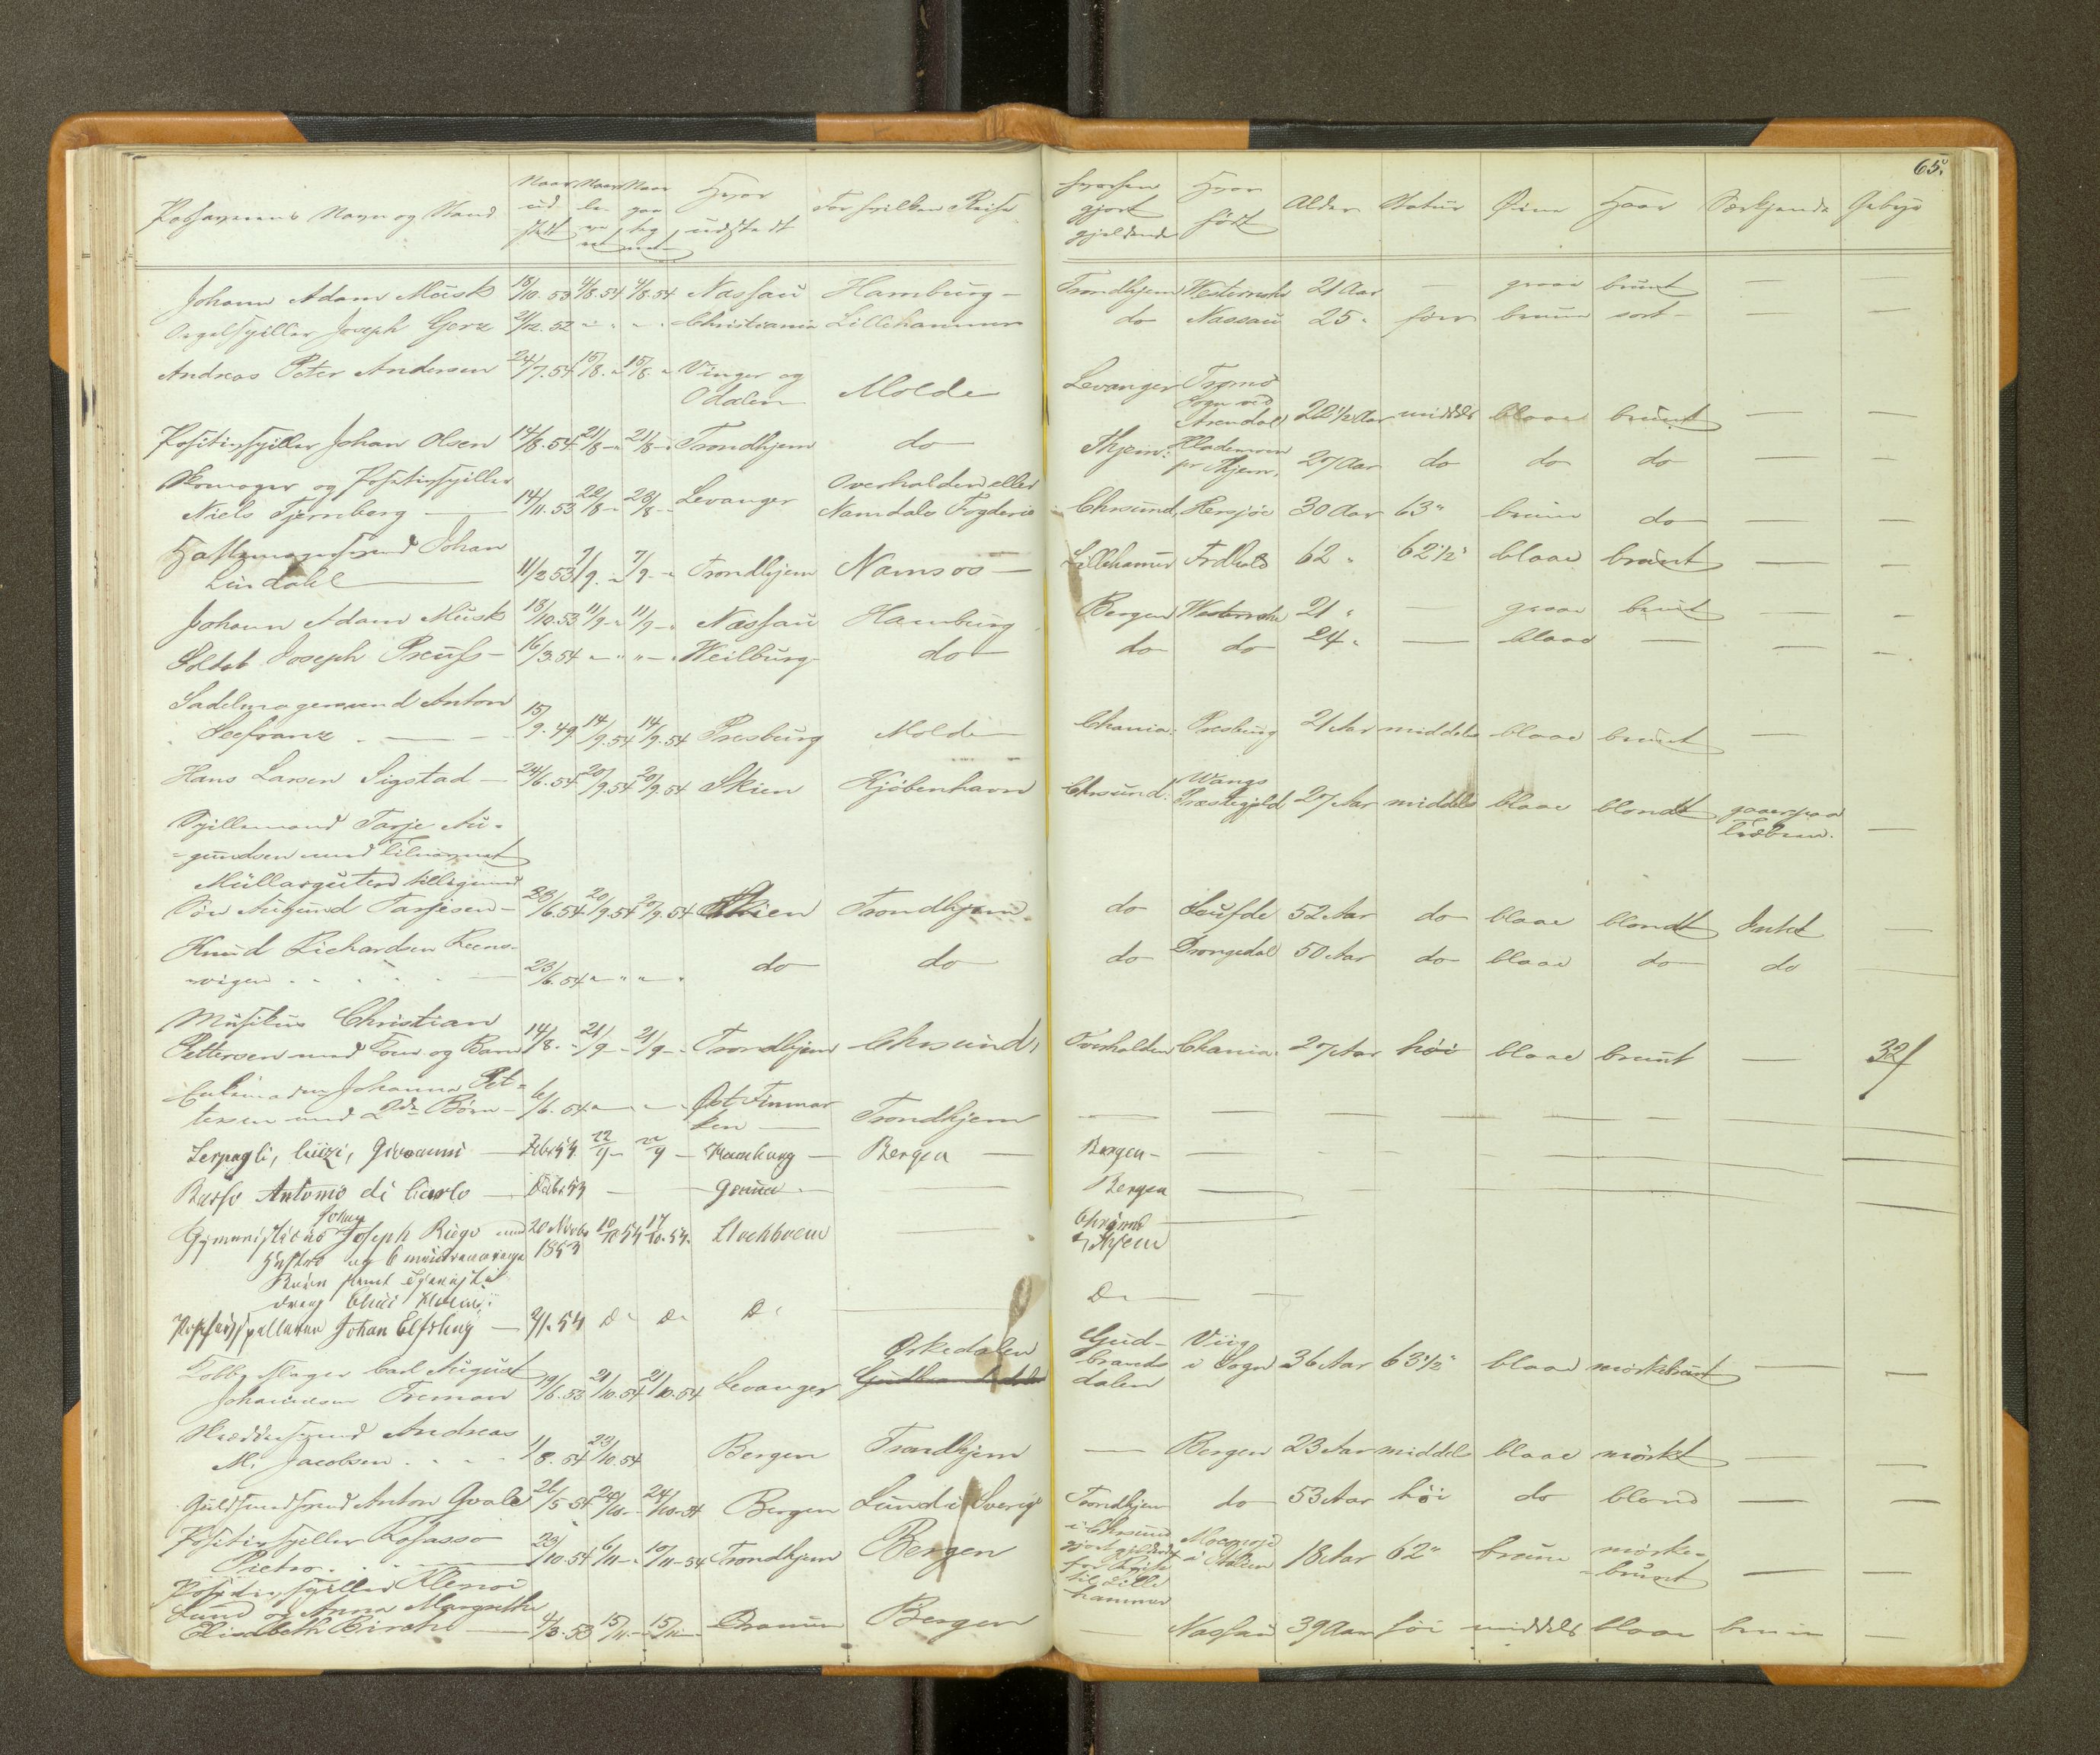 65.
Passagerens Navn og Stand Naar udstedt Naar leveret Naar modtaget Hvor udstedt For hvilken Reise hvorhen gjort gjeldende Hvor födt Alder Statur Øine Haar Særkjende Gebyr
Johann Adam Musk 18/10.53 4/8.54 4/8.54 Nassau Hamburg Trondhjem 21 Aar — graae brunt — —
Orgelspiller Joseph Gerz 21/12.52 " " Christiania Lillehammer do Nassau 25 " före brune sort — —
Andreas Peter Andersen 24/7.54 15/8. " 15/8. " Vinger og
Odalen Molde Levanger Tromö
Sogn ved
Arendal 22 1/2 Aar middels blaae brunt — —
Positivspiller Johan Olsen 14/8.54 21/8 " 21/8 " Trondhjem do Thjem: Hlademoen
pr Thjem. 27 Aar do do do — —
Skomager og Positivspiller
Niels Tjernberg — 14/11.53 22/8 " 23/8 " Levanger Overhalden eller
Namdals Fogderie Chrsund, 30 Aar 63" brune do — —
Hattemagersvend Johan
Lindahl — 11/2 53 7/9. " 7/9 " Trondhjem Namsos — Lillehamer Frdhald 62 " 62 1/2" blaae brunt — —
Johann Adam Musk 18/10.53 11/9 " 11/9 " Nassau Hamburg Bergen 21 " — graae brunt — —
Soldat Joseph Preuss — 16/3.54 " " " Weilburg do do do 24 " — blaae — — —
Sadelmagersvend Anton
Seefranz — 15/9.49 14/9.54 14/9.54 Presburg Molde Chania: Presburg 21 Aar middels blaae brunt —
Hans Larsen Sigstad — 24/6.54 20/9.54 20/9.54 Skien Kjöbenhavn Chrsund: Wangs
Præstegjeld 27 Aar middels blaae blondt gaaer paa
Træbeen. —
Spillemand Tarje Au-
gundsen med Tilnavnet
Müllarguten tilligemed
Sön Augund Tarjesen — 23/6.54 20/9.54 20/9.54 Skien Trondhjem do Saufde 52 Aar do blaae blondt Intet —
Knud Richardsen Reens-
vigen — 23/6.54 " " " do do do Drangedal 50 Aar do blaae do do —
Musikus Christian
Pettersen med Kone og Barn 14/8. " 21/9 " 21/9 " Trondhjem Chrsund, Overhalden Chania: 27 Aar höi blaae brunt — 32/
Enkemadam Johanna Pet-
tersen med 2de Börn — 6/6.54 " — Öst Finmar
ken — Trondhjem — — — — — — — —
Serpagli, Luizi, Giovanni — Febr 54 22/9 — 22/9 — Hamburg — Bergen — Bergen — — — — — — — —
Basso Antonio di Carlo — Febr 54 — — Genua — — Bergen — — — — — — —
Gymnastikus Johan Joseph Riego med 20 Novbr 10/10 54 17/10.54. Stockholm — Chrsund
Hustro og 6 mindreaarige 1853 Thjem
Børn samt
dreng
Positivspelleren Johan Elfsling — 2/1.54 Do Do Do — Do — —
Kobberslager Carl August
Johannesen Freman 19/6.53 21/10.54 21/10.54 Levanger Orkedalen
Gudbrandsdalen Gud-
brands
dalen Viig
i Sogn 36 Aar 63 1/2" blaae mörkebrunt — —
Skræddersvend Andreas
M. Jacobsen 1/8.54 23/10.54 Bergen Trondhjem — Bergen 23 Aar middels blaae mörkt — —
Guldsmedsvend Anton Qvale 26/5 54 24/10 — 24/10 54 Bergen Lund i Sverig Trondhjem do 53 Aar höi do blond — —
Positivspiller Rosasso
Pietro. — 23/10.54 6/11 " 10/11 54 Trondhjem Bergen i Chrsund
gjort gjeldende
for Reise
til Lille
hammer
i Italien 18 Aar 62" brune mörke-
brunt — —
Positivspiller
Lund og Anna Margrethe
Elisabeth Birche — 4/3.53 15/11 — 15/11 — Dramen Bergen Nassau 39 Aar höi middels blaae brun —